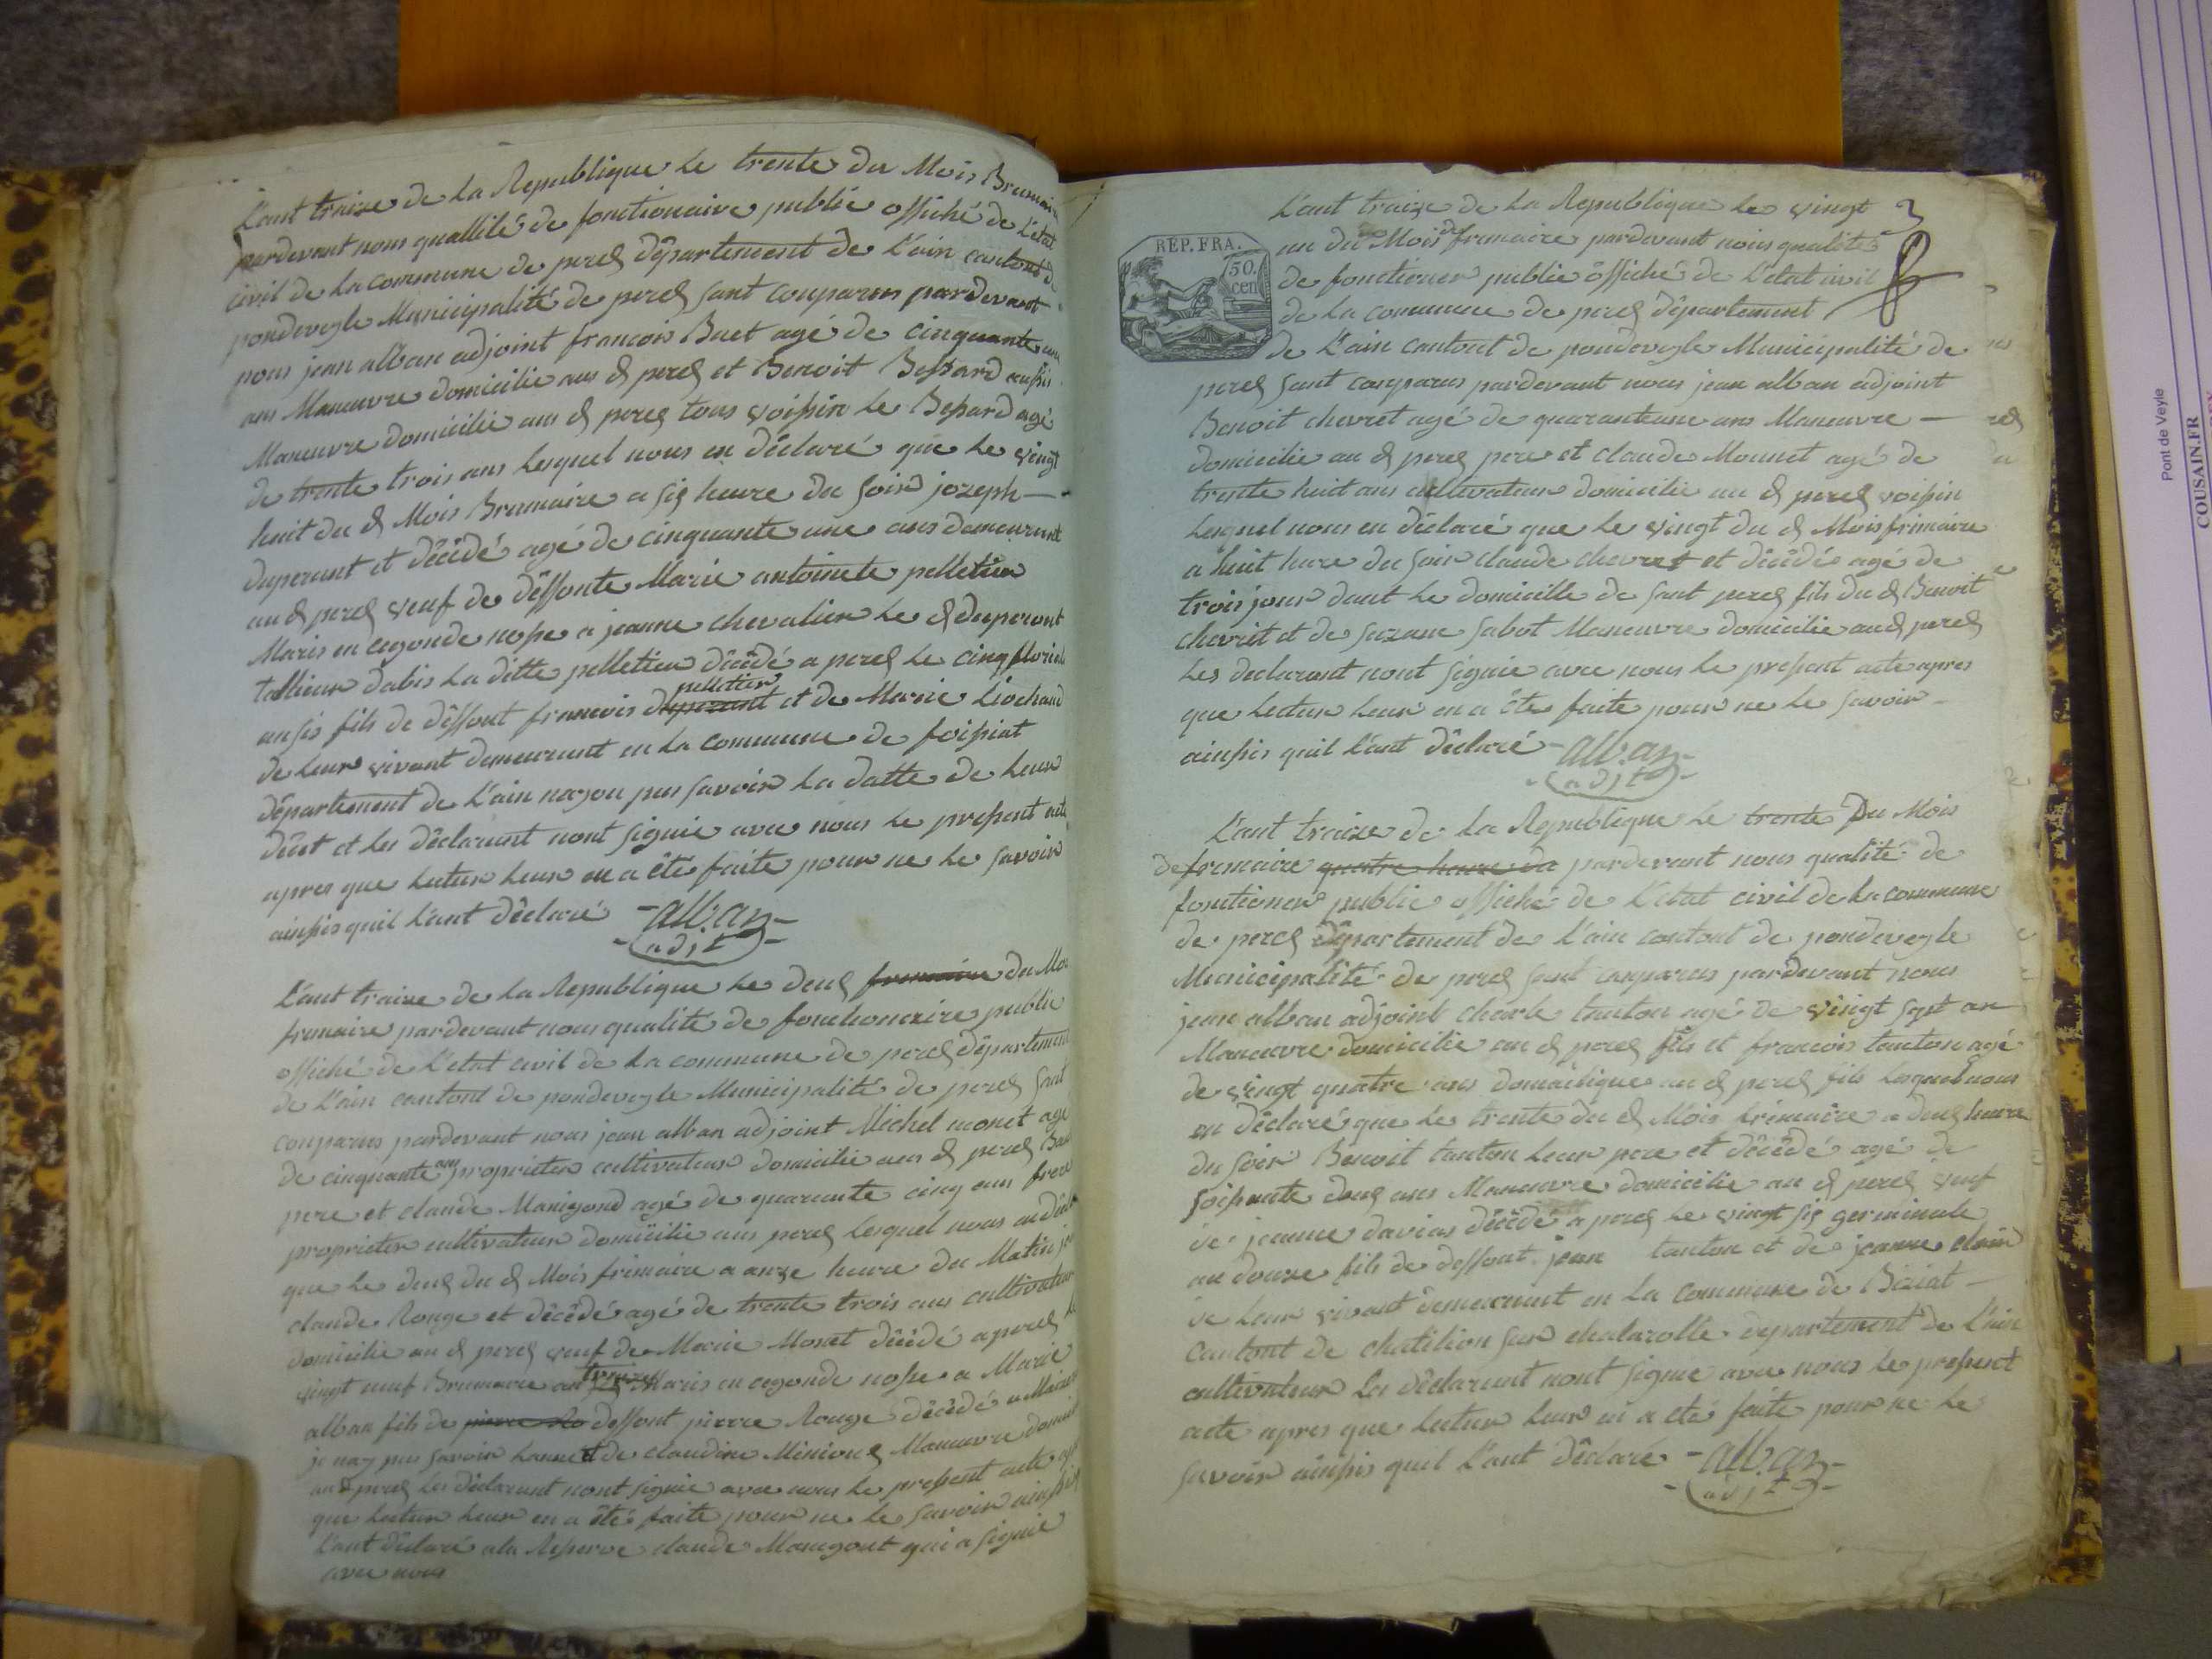 L'ant traize de La Republique Le trente du Mois Brumaire
pardevant nous quallité de fonctionaire public offiché de L'etat
civil de La commune de perex département de L'ain cantont de
pondevegle Municipalité de perex sant conparus pardevant
nous jean alban adjoint francois Buet agé de cinquante un
ans Maneuvre domicilie aus d perex et Benoit Bessard aussis
Maneuvre domicilie aus d perex tous voissin Le Bessard agé
de trente trois ans Lesquel nous en déclaré que Le vingt
huit du d Mois Brumaire a six heure du soir jozeph —
duperant et décédé agé de cinquante une ans demeurant
au d perex veuf de deffonte Marie antoinete pelletier
Maris en cegonde nosse a jeanne chevalier Le d duperont
tallieur dabis La ditte pelletier décédé a perex Le cinq florial
an sis fils de deffont francois duperant pelletier et de Marie Liochaud
de Leur vivant demeurant en La commune de foissiat
département de L'ain nayon pus savoir La datte de Leur
décet et Les déclarant nont signie avec nous Le pressent acte
apres que Lectur Leur en a été faite pour ne Le savoir
ainssis quil L'ant déclaré - alban -
- adjt -
L'ant traize de La Republique Le deux frimaire du Mois
frimaire pardevant nous qualité de fonctionaire public
offiché de L'etat civil de La commune de perex département
de L'ain cantont de pondevegle Municipalité de perex sant
conparus pardevant nous jean alban adjoint Michel monet agé
de cinquante ans proprieter cultivateur domicilie aus d perex Beau
pere et claude Manigond agé de quarante cinq ans frere
proprieter cultivateur domicilie aus perex Lesquel nous en déclaré
que Le deux du d Mois frimaire a onze heure du Matin
claude Rouge et décédé agé de trente trois ans cultivateur
domicilie au d perex veuf de Marie Monet décédé a perex Le
vingt neuf Brumaire an traize Maris en cegonde nosse a Marie
alban fils de pierre Ro deffont pierre Rouge décédé a
je nay pus savoir Lannee et de claudine Maneuvre
au d perex Les déclarant nont signie avec nous Le pressent acte
que Lectur Leur en a été faite pour ne Le savoir ainssis
L'ant déclaré a la Resserve claude Manigout qui a signie
avec nous
3
REP. FRA.
50.
cen
L'ant traize de La Republique Le vingt
un du Mois de frimaire pardevant nous qualité
de fonctioner public offiché de L'etat civil
de La commune de perex département
de L'ain cantont de pondevegle Municipalité de
perex sant conparus pardevant nous jean alban adjoint
Benoit chevret agé de quaranteune ans Maneuvre —
domicilie au d perex pere et claude Monnet agé de
trente huit ans cultivateur domicilie au d perex voissin
Lesquel nous en déclaré que Le vingt du d Mois frimaire
a huit hure du soir claude chevret et décédé agé de
trois jour dant Le domicille de sant perex fils du d Benoit
chevrit et de suzane sabot Maneuvre domicilie au d perex
Les declarant nont signie avec nous Le pressent acte apres
que Lectur Leur en a été faite pour ne Le savoir -
ainssis quil L'ant déclaré - alban -
- adjt -
L'ant traize de La Republique Le trente Du Mois
de frimaire quatre heure du pardevant nous qualité de
fonctioner public offiché de L'etat civil de La commune
de perex département de L'ain cantont de pondevegle
Municipalité de perex sant conparus pardevant nous
jean alban adjoint charle tanton agé de vingt sept an
Maneuvre domicilie au d perex fils et francois tanton agé
de vingt quatre ans domaitique au d perex fils Lesquel nous
en déclaré que Le trente du d Mois frimaire a deux heure
du soir Benoit tanton Leur pere et décédé agé de
soissante deux ans Maneuvre domicilie au d perex veuf
de jeanne davias décédé a perex Le vingt six germinale
an douze fils de deffont jean tanton et de jeanne
de Leur vivant demeurant en La commune de Biziat —
cantont de chatilion sur chalarolle departement de L'ain
cultivateur Les déclarant nont signie avec nous Le pressent
acte apres que Lectur Leur en a été faite pour ne Le
savoir ainssis quil L'ant déclaré - alban -
- adjt -
Pont de Veyle
COUSAIN.FR